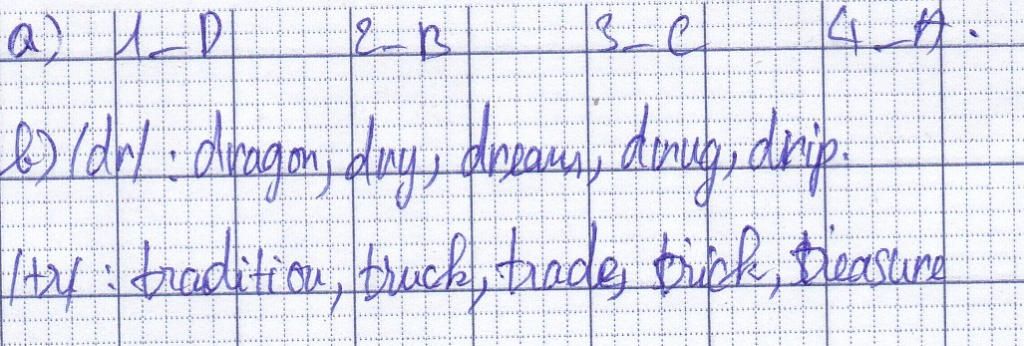 a) 1_D 2_B 3_C 4_A.
b) /dr/ : dragon, dry, dream, drug, drip.
/tr/ : tradition, truck, trade, trick, treasure